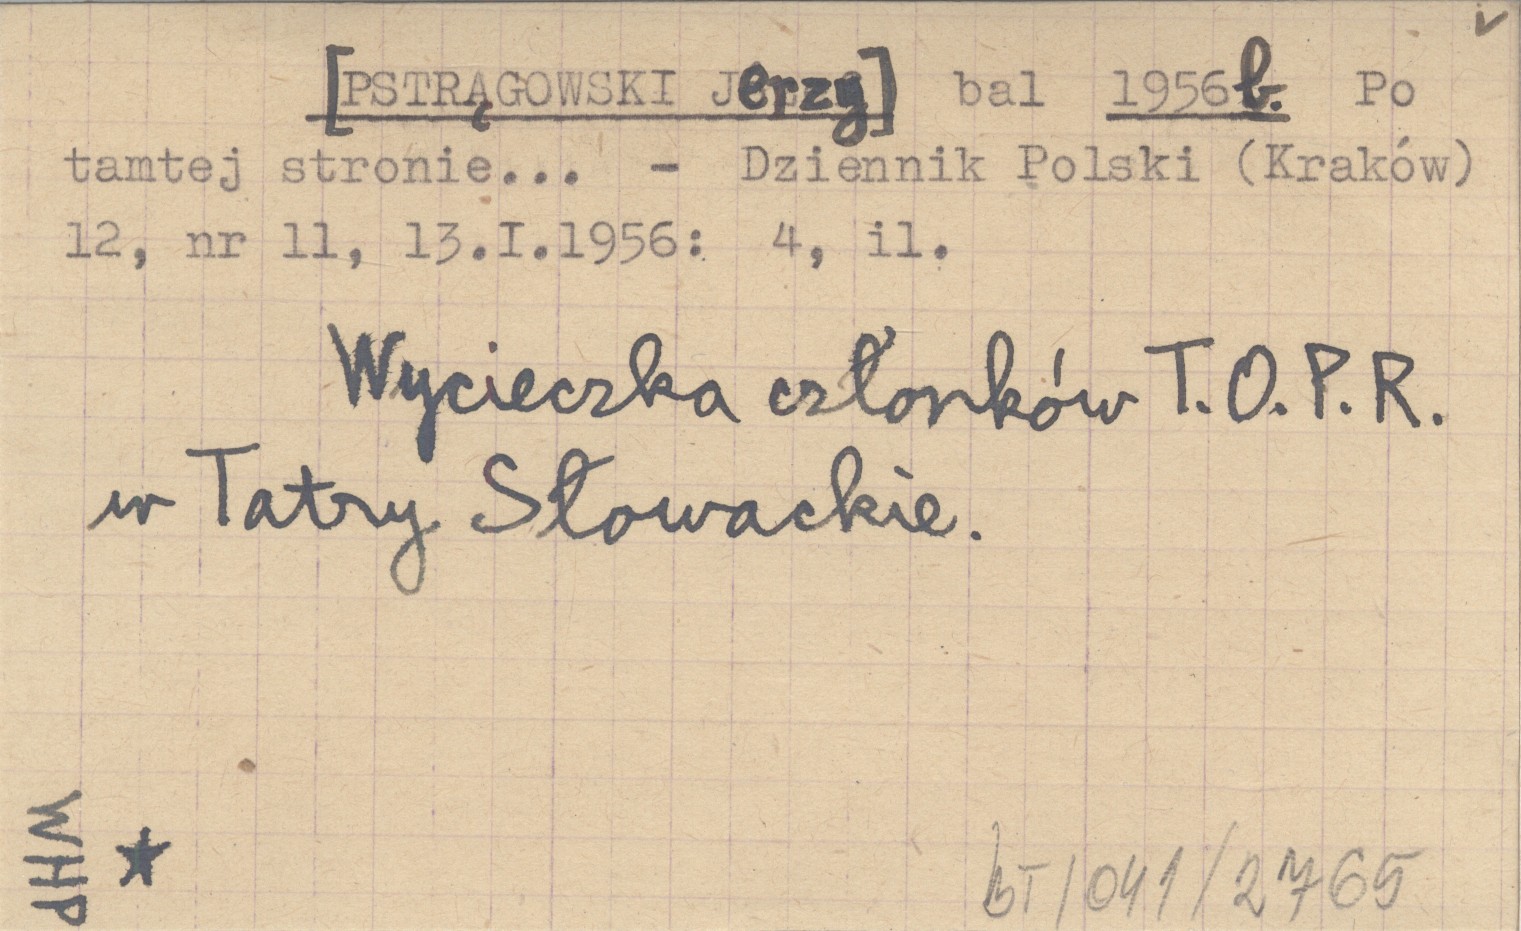 v
[PSTRĄGOWSKI Jerzy] bal 1956b. Po
tamtej stronie... - Dziennik Polski (Kraków)
12, nr 11, 13.I.1956: 4, il.
Wycieczka członków T.O.P.R.
w Tatry Słowackie.
WHP ★
bT/041/2765